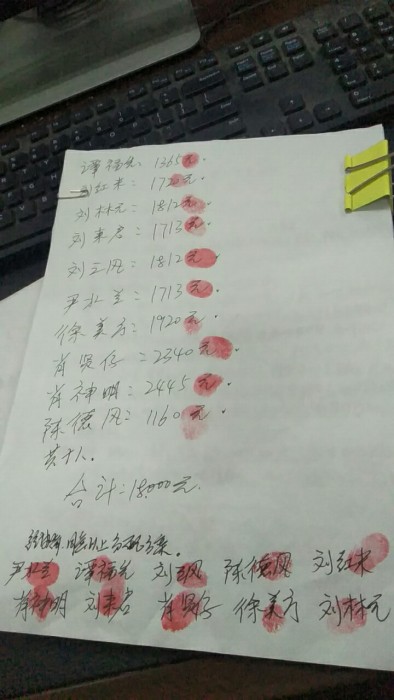 谭福先：1365元.
刘红来：1720元.
刘林元：1812元.
刘来启：1713元.
刘三风：1812元.
尹水兰：1713元.
徐美方：1920元.
肖贤仔：2340元.
肖神明：2445元.
陈德风：1160元.
共十人.
合计：18,000元.
同意以上分配方案.
尹水兰 谭福先 刘三风 陈德风 刘红来
肖神明 刘来启 肖贤仔 徐美方 刘林元